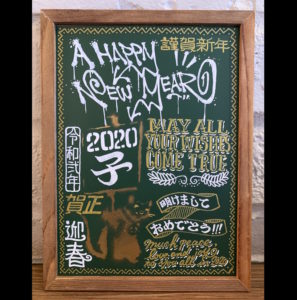 A HAPPY
謹賀新年
NEW YEAR
2020
子
MAY ALL
YOUR WISHES
COME TRUE
令和弐年
賀正
迎春
明けまして
おめでとう!!!
Much peace,
love and
to you all